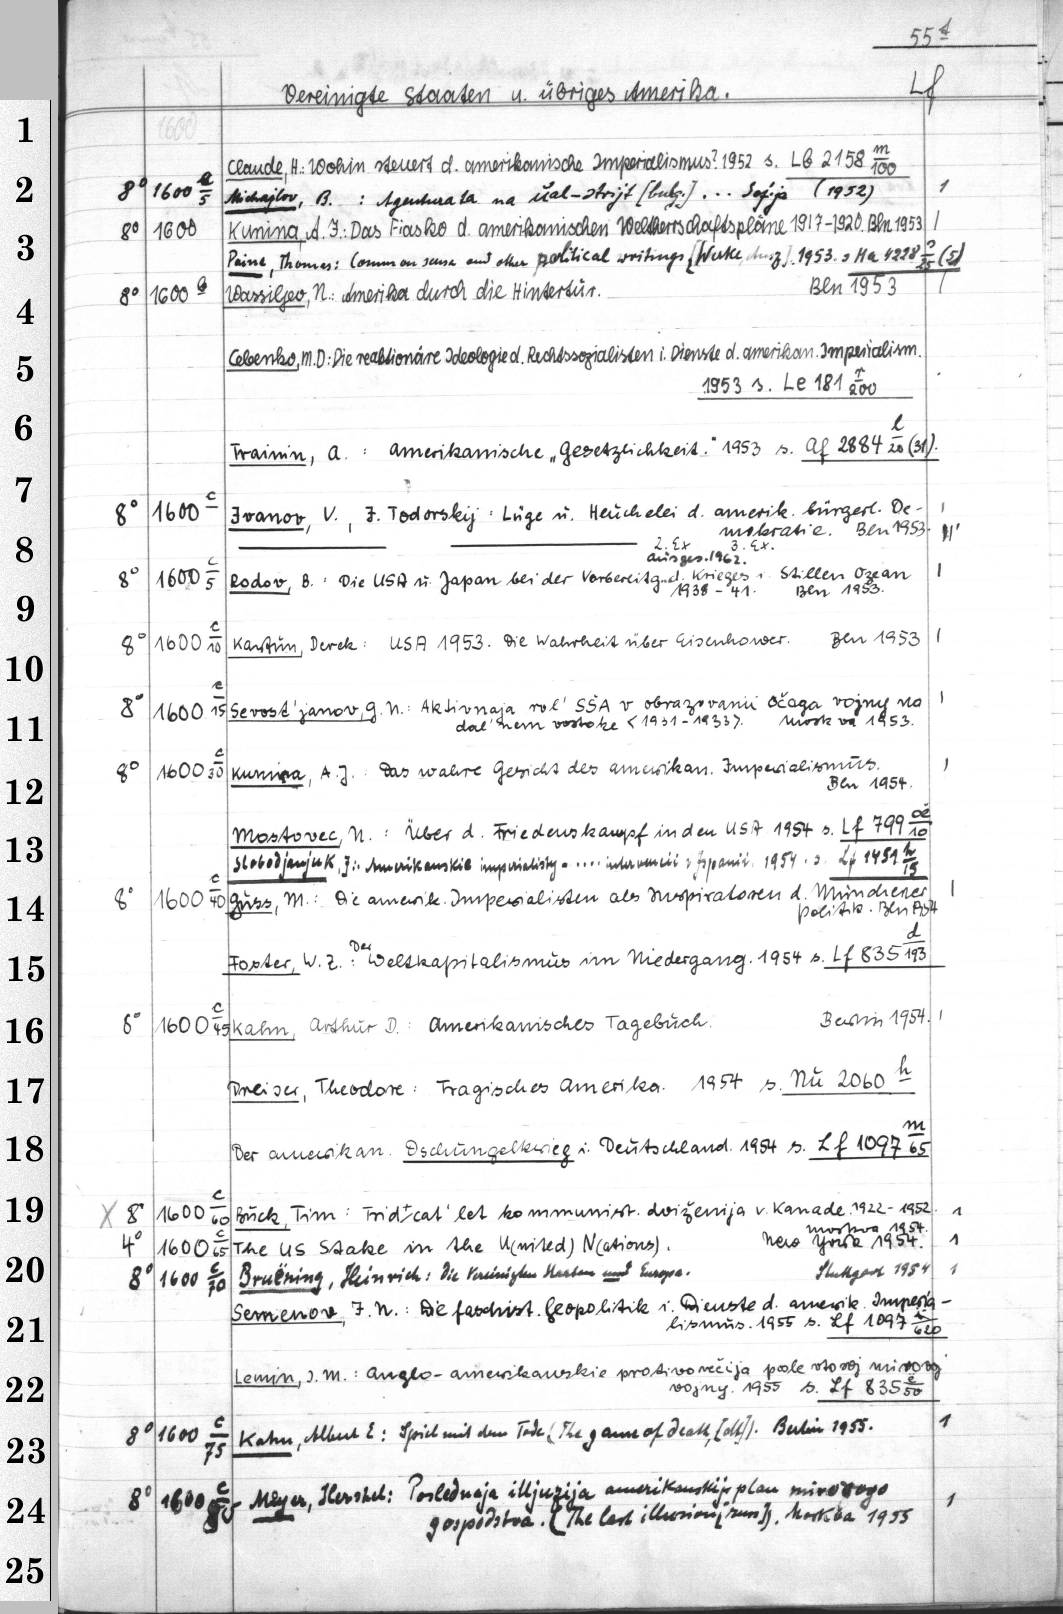 55d
Lf
Vereinigte Staaten u. übriges Amerika.
1
1600
Claude, H.: Wohin steuert d. amerikanische Imperialismus? 1952 s. Lb 2158 m/100
2 8° 1600 a/5 Michajlov, B. : Agenturata na Ual-strijt [bulg.] ... Sofija (1952) 1
3 8° 1600 Kunina, A. J.: Das Fiasko d. amerikanischen Weltherrschaftspläne 1917-1920. Bln 1953 1
Paine, Thomas: Common sense and other political writings [Werke, Ausz.]. 1953. s Ha 4228 /25 (5)
4 8° 1600 b Wassiljev, N.: Amerika durch die Hintertür. Bln 1953 1
5 Cebenko, M.D: Die reaktionäre Ideologie d. Rechtssozialisten i. Dienste d. amerikan. Imperialism.
1953 s. Le 181 r/200
6
Trainin, A. : Amerikanische „Gesetzlichkeit." 1953 s. Af 2884 l/20 (31).
7
8° 1600 c Ivanov, V., J. Todorskij : Lüge u. Heuchelei d. amerik. bürgerl. De- 1
mokratie. Bln 1953.
8 2. Ex 3. Ex.
ausges. 1962.
8° 1600 c/5 Rodov, B. : Die USA u. Japan bei der Vorbereitg. d. Krieges i. Stillen Ozean 1
1938-41. Bln 1953.
9
8° 1600 c/10 Kartun, Derek: USA 1953. Die Wahrheit über Eisenhower. Bln 1953 1
10
8° 1600 c/15 Sevost'janov, G. N.: Aktivnaja rol' SŠA v obrazovanii očaga vojny na 1
11 dal'nem vostoke <1931-1933>. Moskva 1953.
8° 1600 c/30 Kunina, A. J. : Das wahre Gesicht des amerikan. Imperialismus. 1
12 Bln 1954.
Mostovec, N. : Über d. Friedenskampf in den USA 1954 s. Lf 799 oe/10
13 Slobodjanjuk, J.: Amerikanskie imperialisty - .... intervencii v Ispanii. 1954. s. Lf 1451 h/15
14 8° 1600 c/40 Güss, M.: Die amerik. Imperialisten als Inspiratoren d. Münchener 1
politik. Bln 1954
15 Foster, W. Z. : Der Weltkapitalismus im Niedergang. 1954 s. Lf 835 d/193
16 8° 1600 c/45 Kahn, Arthur D. : Amerikanisches Tagebuch. Berlin 1954. 1
17 Dreiser, Theodore : Tragisches Amerika. 1954 s. Nu 2060 h
18 Der amerikan. Dschungelkrieg i. Deutschland. 1954 s. Lf 1097 m/65
19 X 8° 1600 c/60 Buck, Tim : Tridcat' let kommunist. dviženija v. Kanade. 1922-1952. 1
Moskva 1954.
4° 1600 c/65 The US Stake in the U(nited) N(ations). New York 1954. 1
20 8° 1600 c/70 Bruening, Heinrich: Die Vereinigten Staaten und Europa. Stuttgart 1954 1
Semenov, J. N. : Die faschist. Geopolitik i. Dienste d. amerik. Imperia-
21 lismus. 1955 s. Lf 1097 /620
22 Lemin, J. M. : Anglo-amerikanskie protivorečija posle vtoroj mirovoj
vojny. 1955 s. Lf 835 e/50
23 8° 1600 c/75 Kahn, Albert E: Spiel mit dem Tode (The game of death, [dt.]). Berlin 1955. 1
24 8° 1600 c Meyer, Hershel: Poslednaja illjuzija amerikanskij plan mirovogo 1
gospodstva. (The last illusion [russ.]). Moskva 1955
25